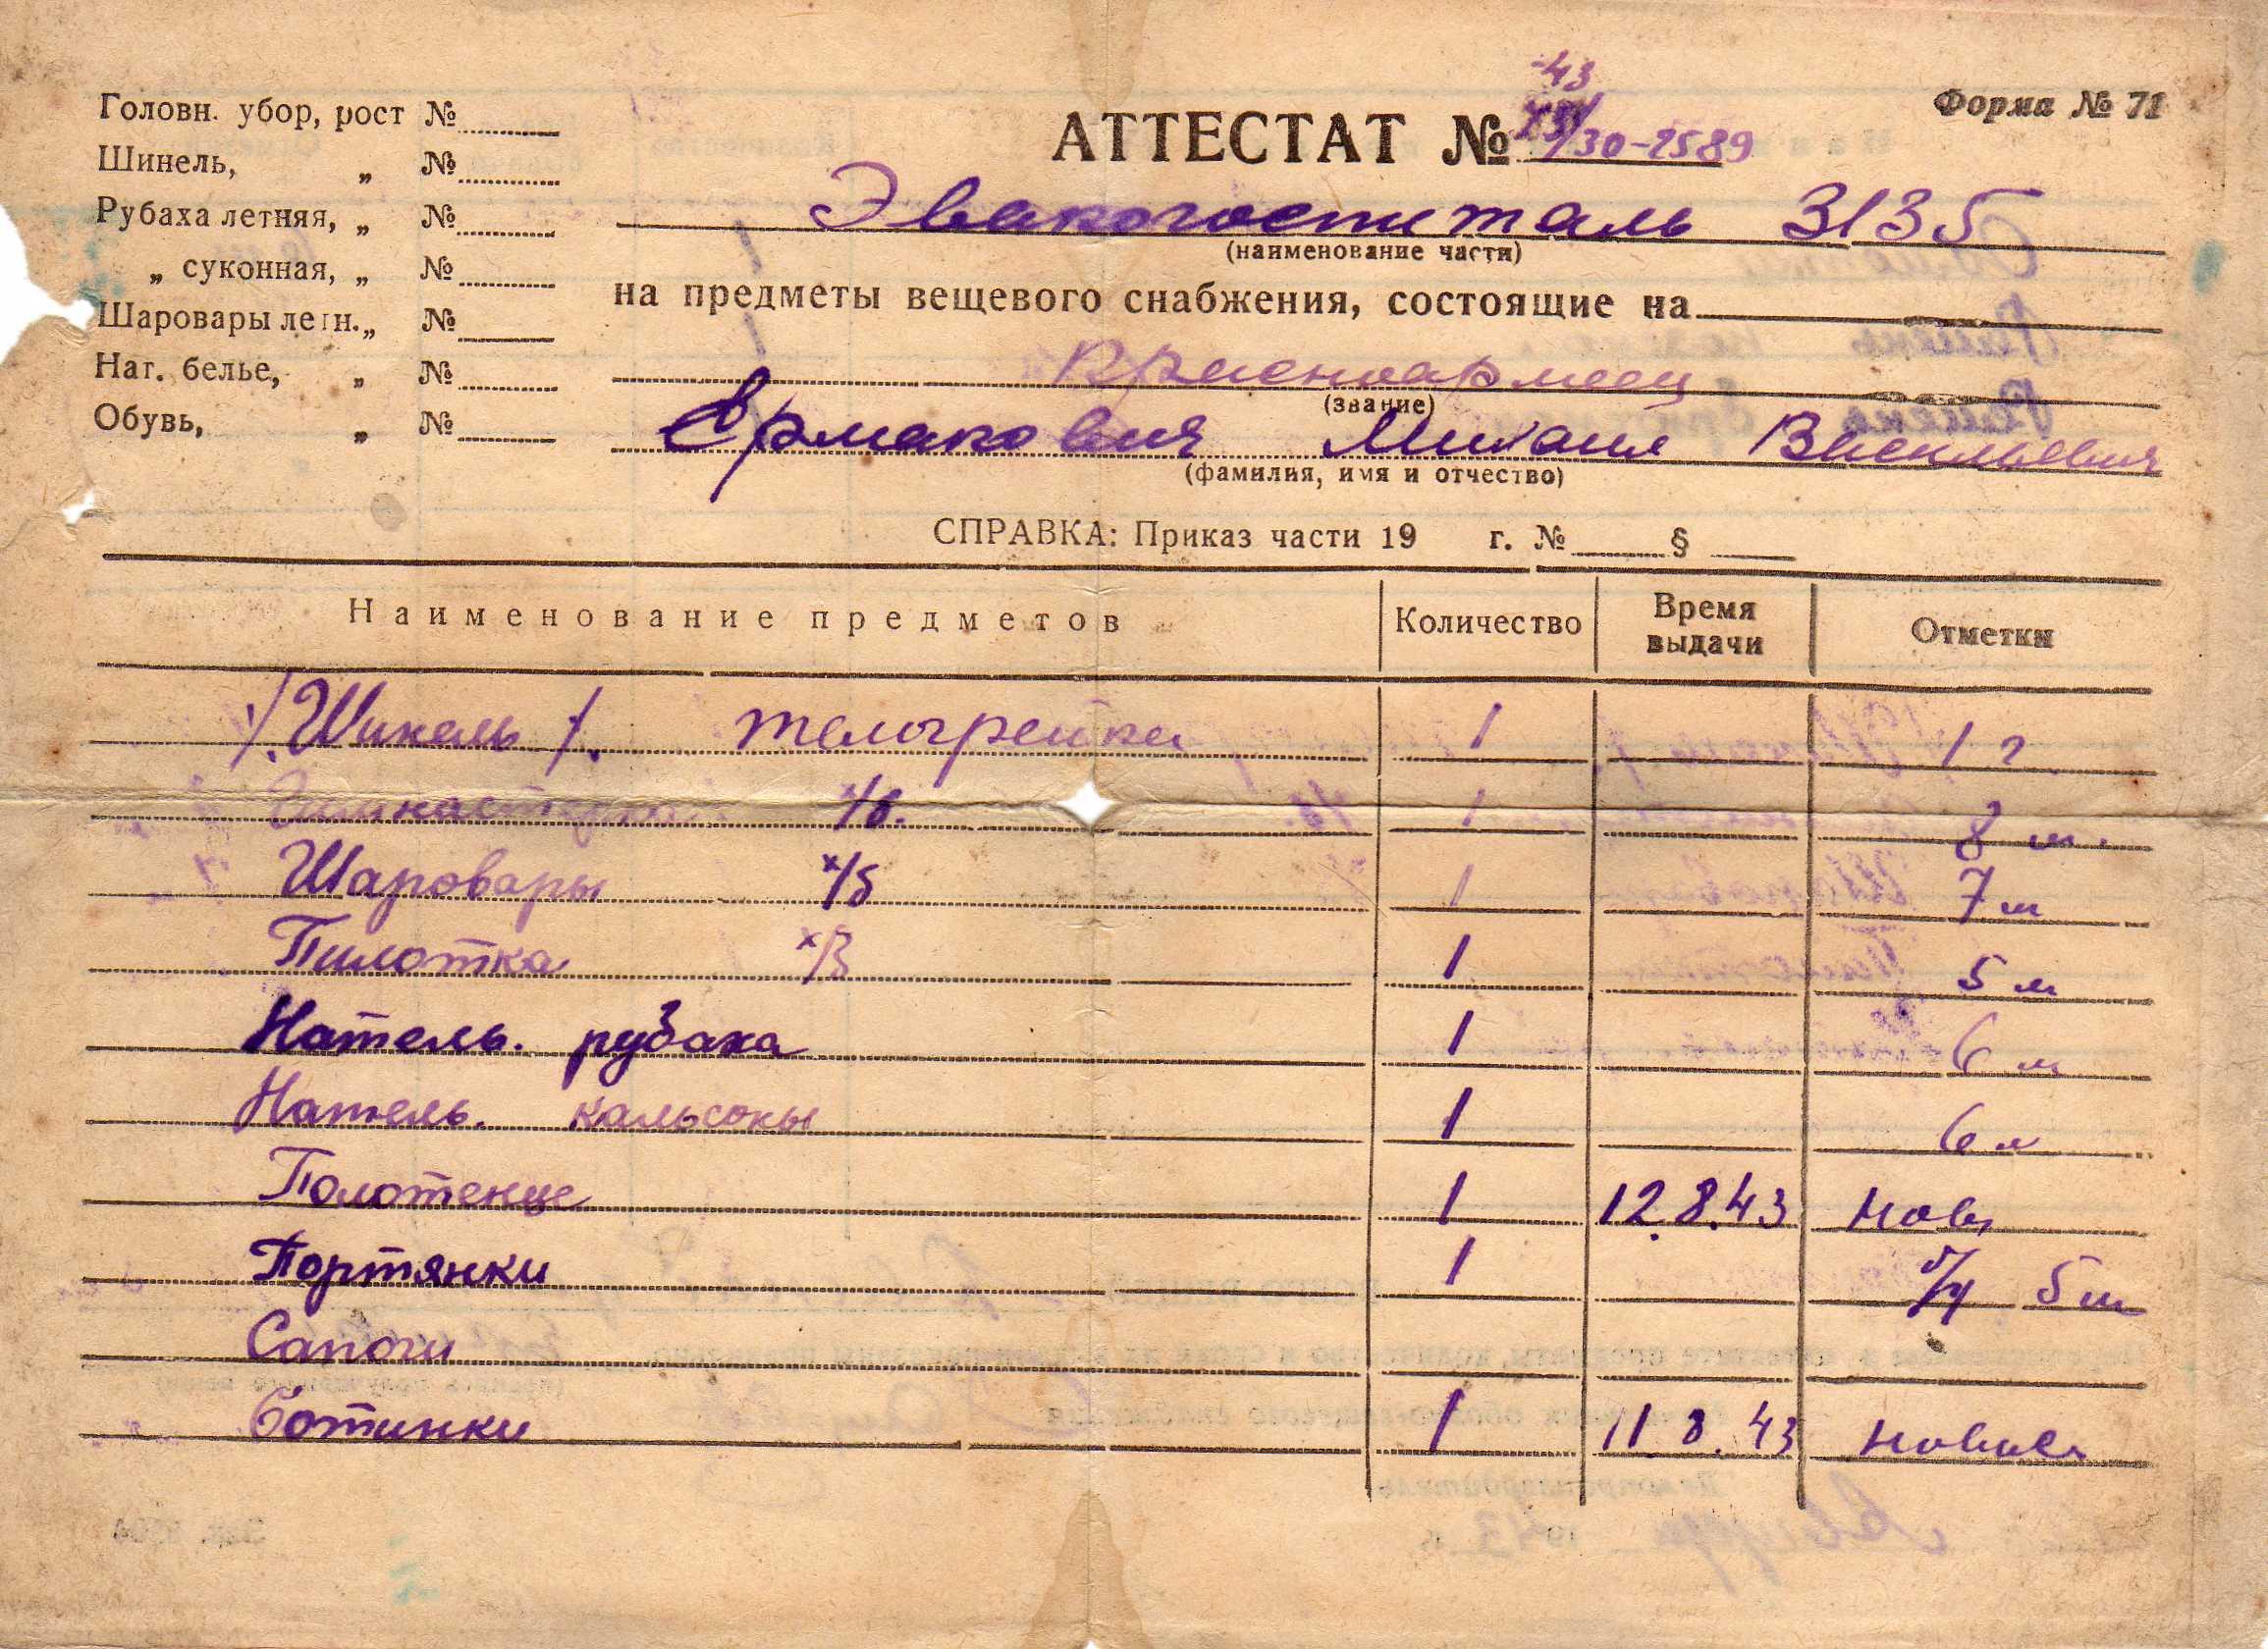 Форма № 71
Головн. убор, рост №
Шинель, „ №
Рубаха летняя, „ №
„ суконная, „ №
Шаровары летн. „ №
Наг. белье, „ №
Обувь, „ №
АТТЕСТАТ № /30-2589
43
Эвакогоспиталь 3135
(наименование части)
на предметы вещевого снабжения, состоящие на
Красноармеец
(звание)
Ермакович Михаил Васильевич
(фамилия, имя и отчество)
СПРАВКА: Приказ части 19 г. № §
Наименование предметов Количество Время выдачи Отметки
Шинель телогрейка 1 1 г
Гимнастерка х/б. 1 8 м.
Шаровары х/б 1 7 м
Пилотка х/б 1 5 м
Натель. рубаха 1 6 м
Натель. кальсоны 1 6 м
Полотенце 1 12.8.43 нов
Портянки 1 5 м
Сапоги
Ботинки 1 11 8.43 новые